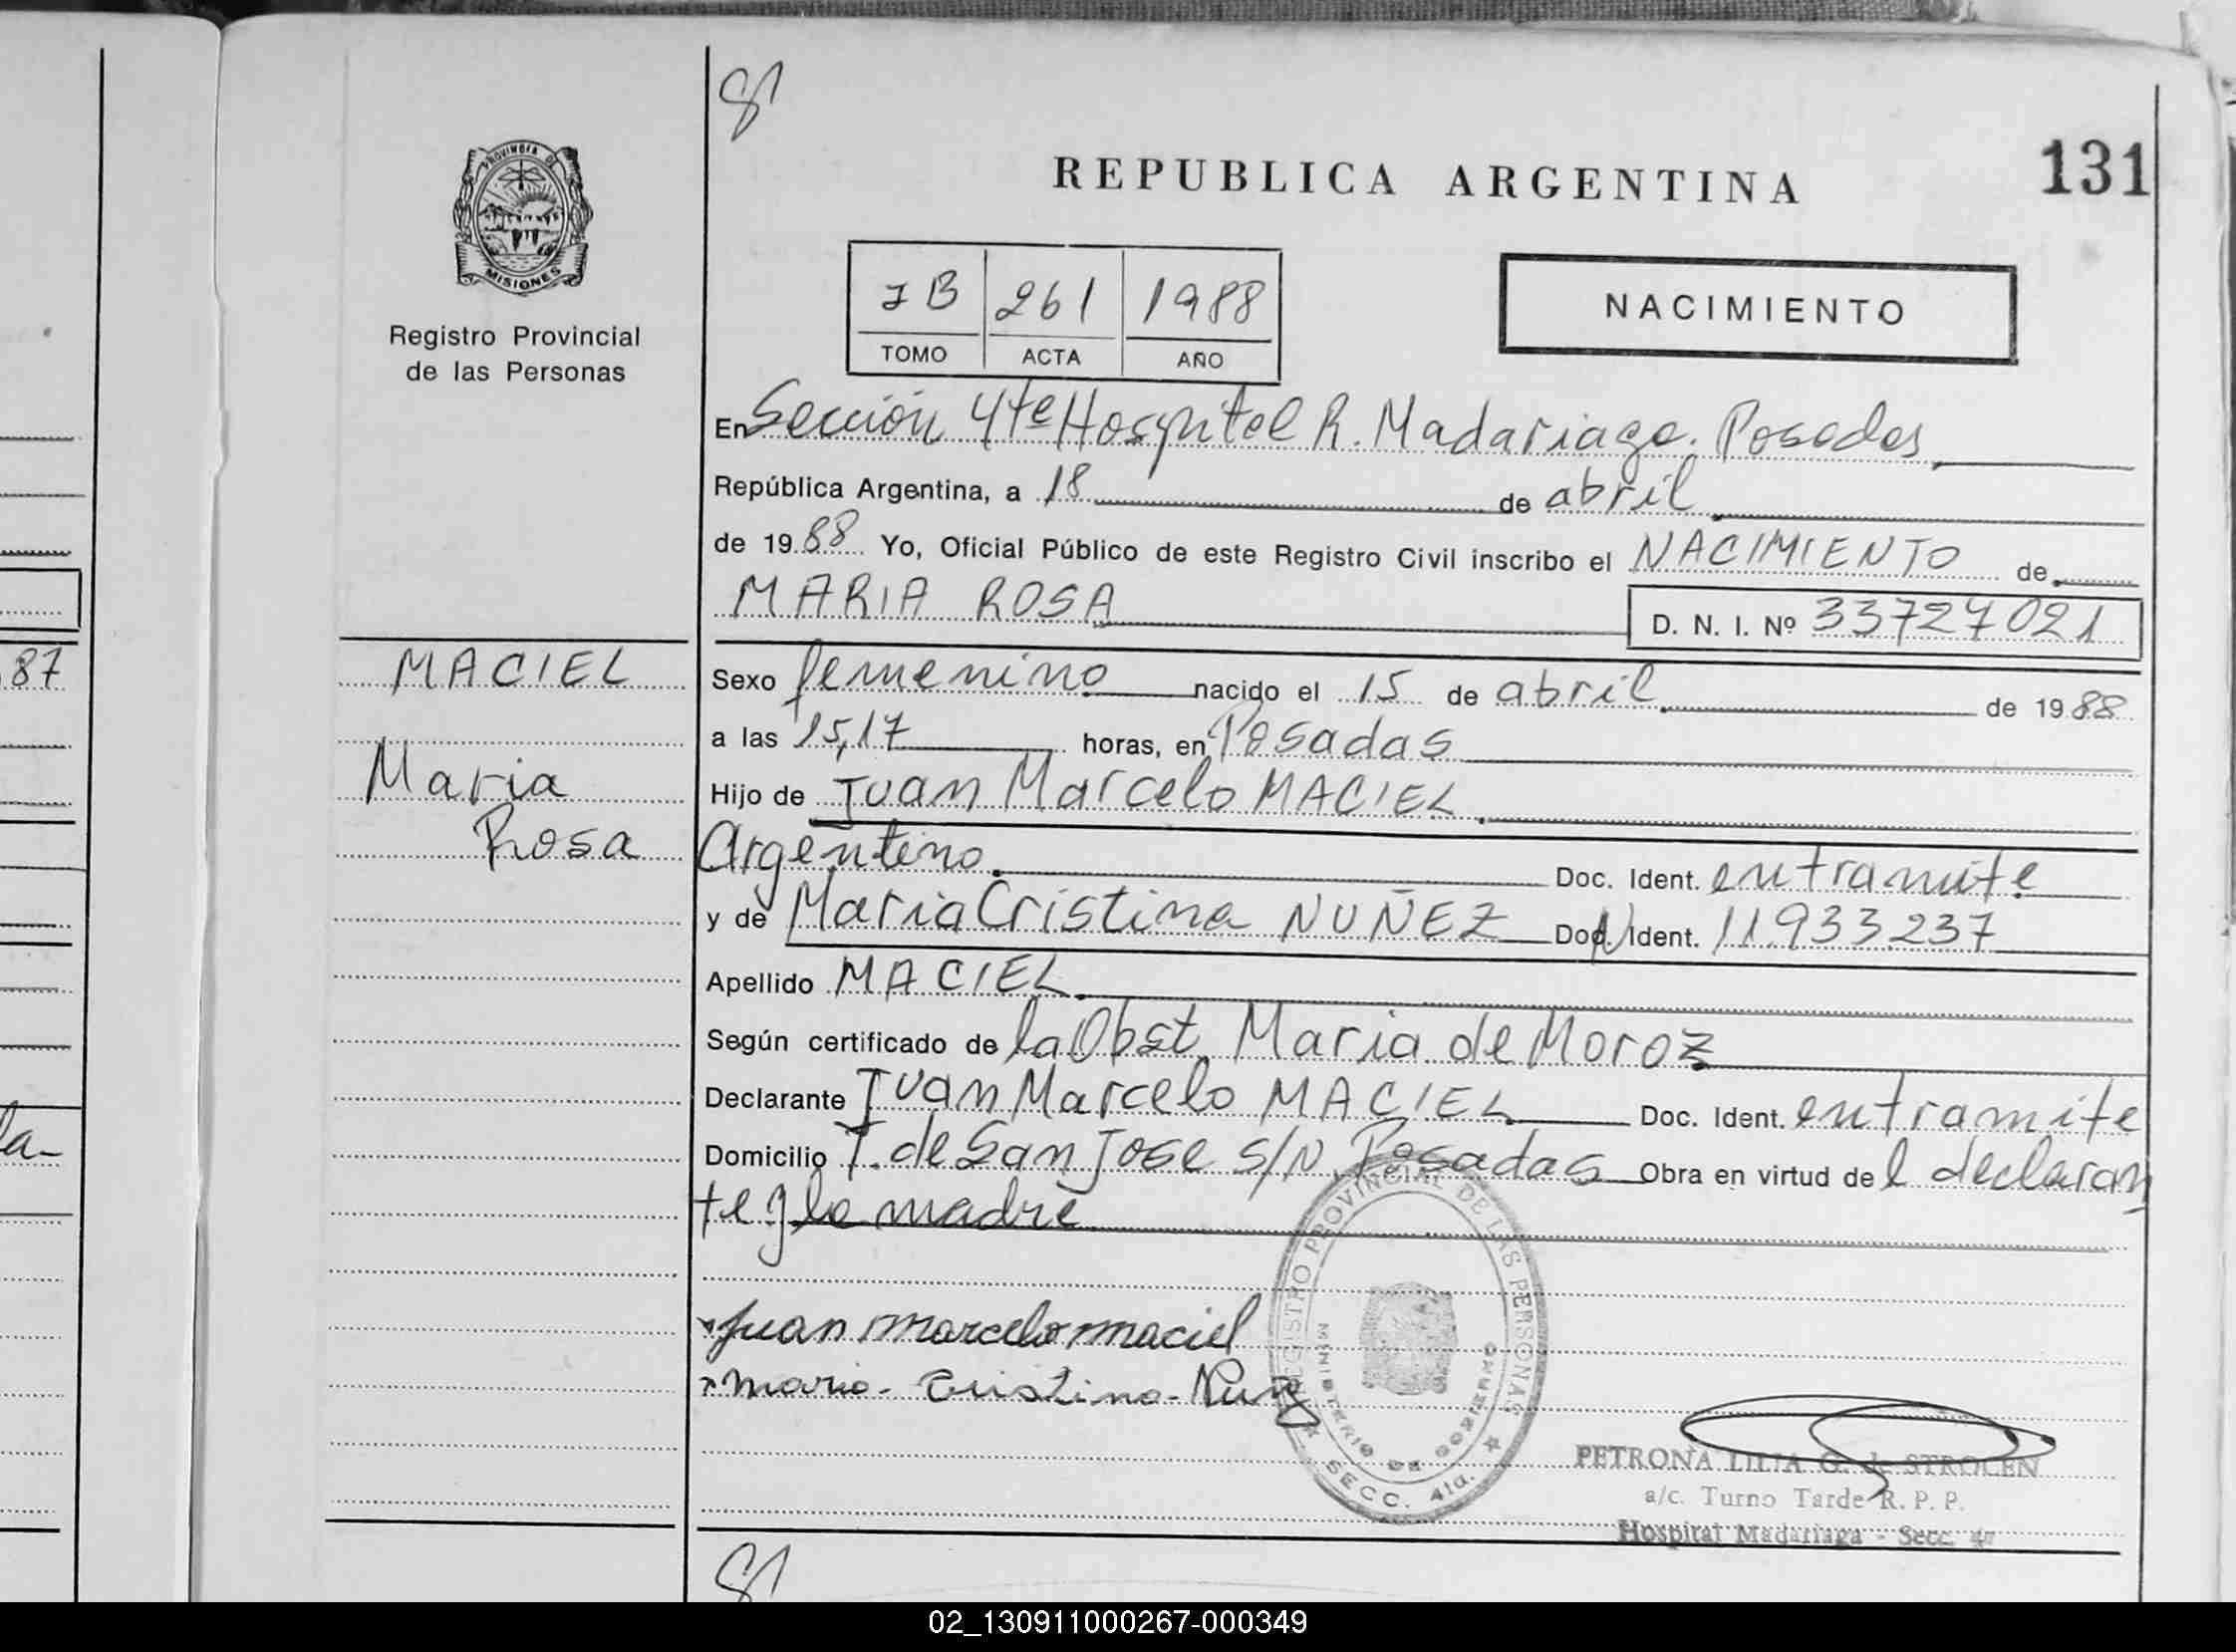 87
la-
PROVINCIA DE
MISIONES
Registro Provincial
de las Personas
MACIEL
Maria
Rosa
REPUBLICA ARGENTINA
131
261 1988
TOMO ACTA AÑO
NACIMIENTO
En Sección 4ta Hospital R. Madariaga. Posadas
República Argentina, a 18 de abril
de 1988 Yo, Oficial Público de este Registro Civil inscribo el NACIMIENTO de
MARIA ROSA
D. N. I. Nº 33727021
Sexo femenino nacido el 15 de abril de 1988
a las 15,17 horas, en Posadas
Hijo de Juan Marcelo MACIEL
Argentino. Doc. Ident. en tramite
y de Maria Cristina NUÑEZ Doc. Ident. 11933237
Apellido MACIEL
Según certificado de la Obst. Maria de Moroz
Declarante Juan Marcelo MACIEL Doc. Ident. en tramite
Domicilio T. de San Jose s/n Posadas Obra en virtud de l declaran
te y la madre
Juan marcelo maciel
maria - Cristina - Nuñez
REGISTRO PROVINCIAL DE LAS PERSONAS
MINISTERIO DE GOBIERNO
SECC. 4ta.
PETRONA LILIA G. de STROCEN
a/c. Turno Tarde R. P. P.
Hospital Madariaga - Secc. 4ª
02_130911000267-000349